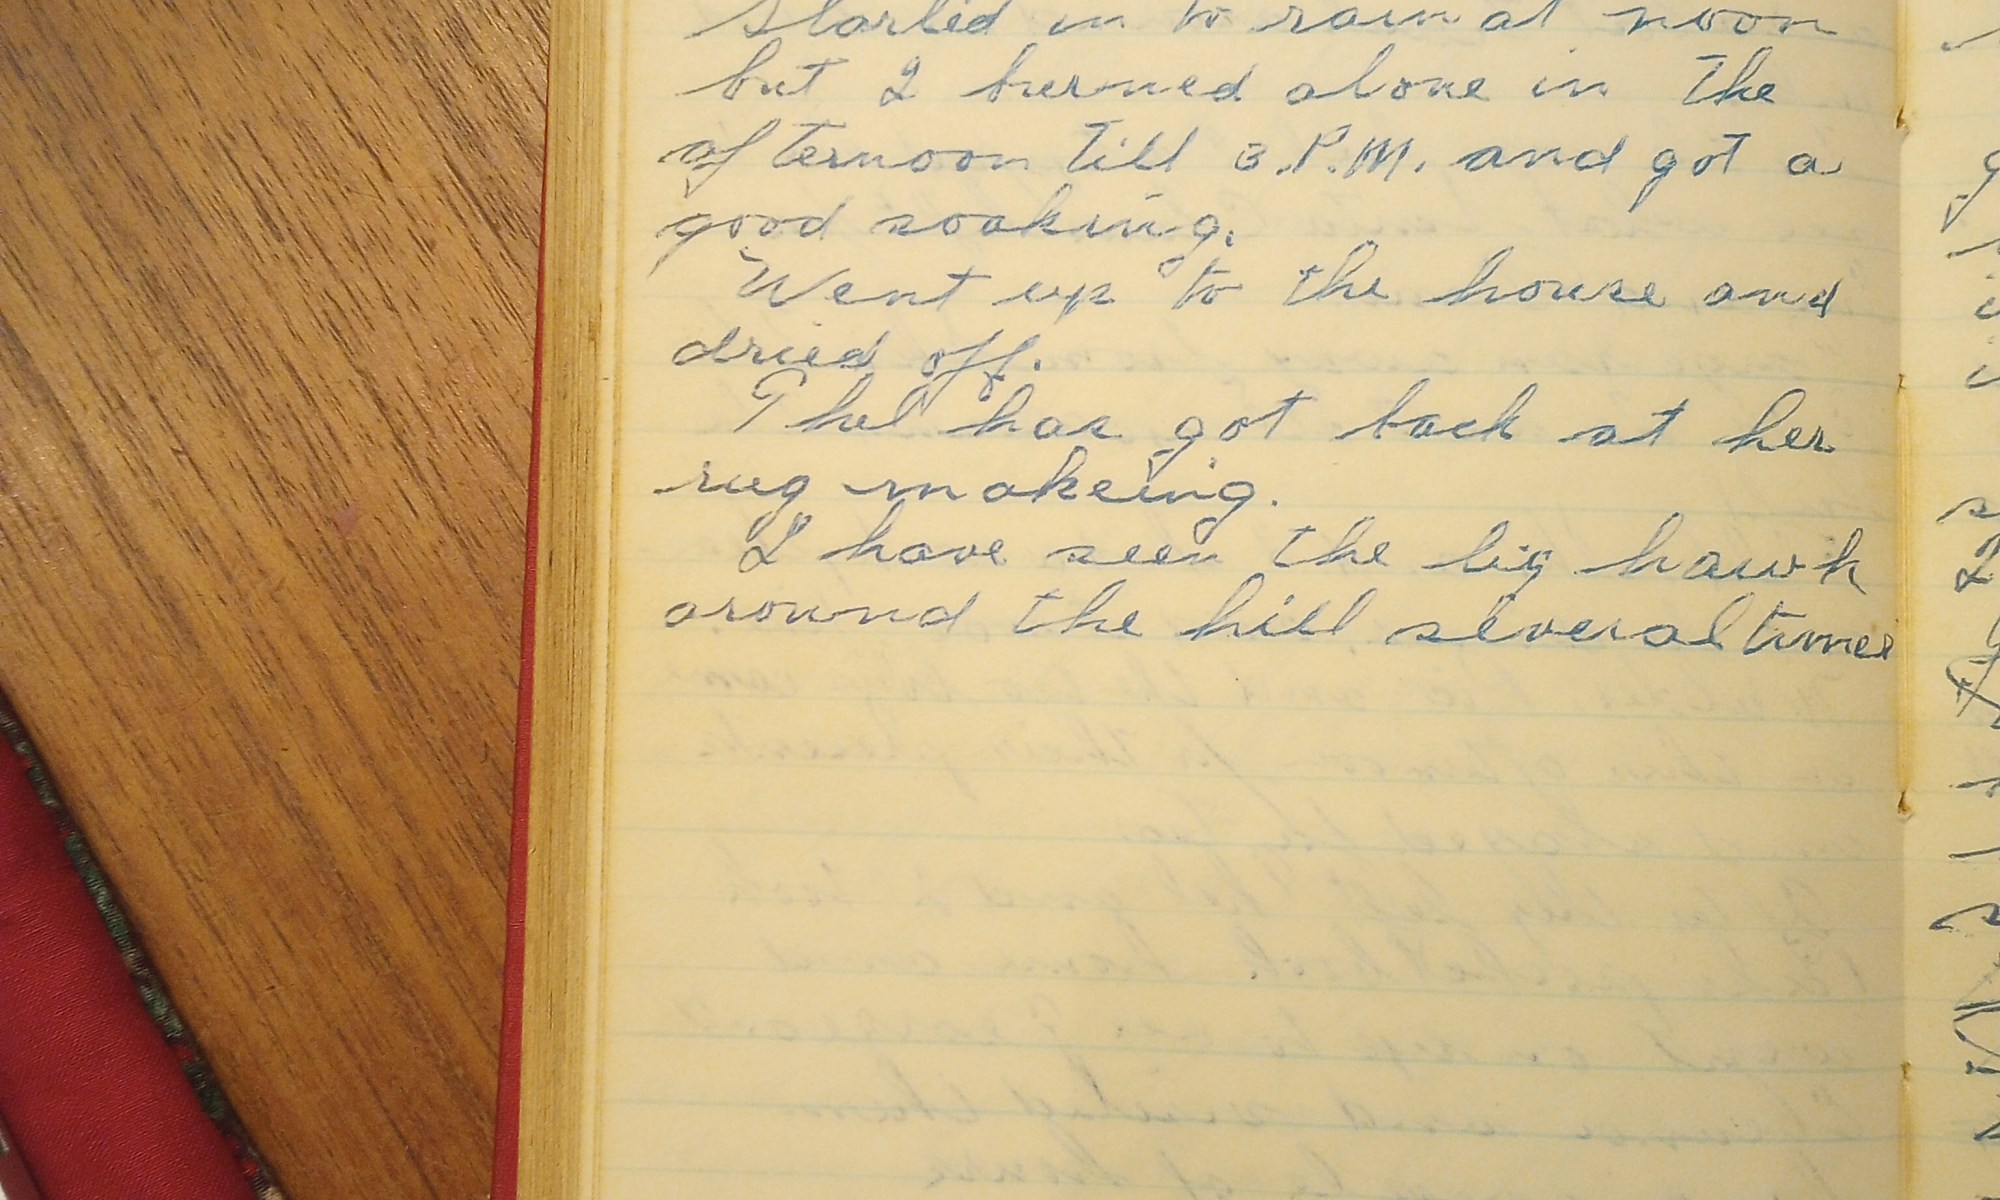 started in to rain at noon
but I burned alone in the
afternoon till 3.P.M. and got a
good soaking.
Went up to the house and
dried off.
Thel has got back at her
rug makeing.
I have seen the big hawk
around the hill several times